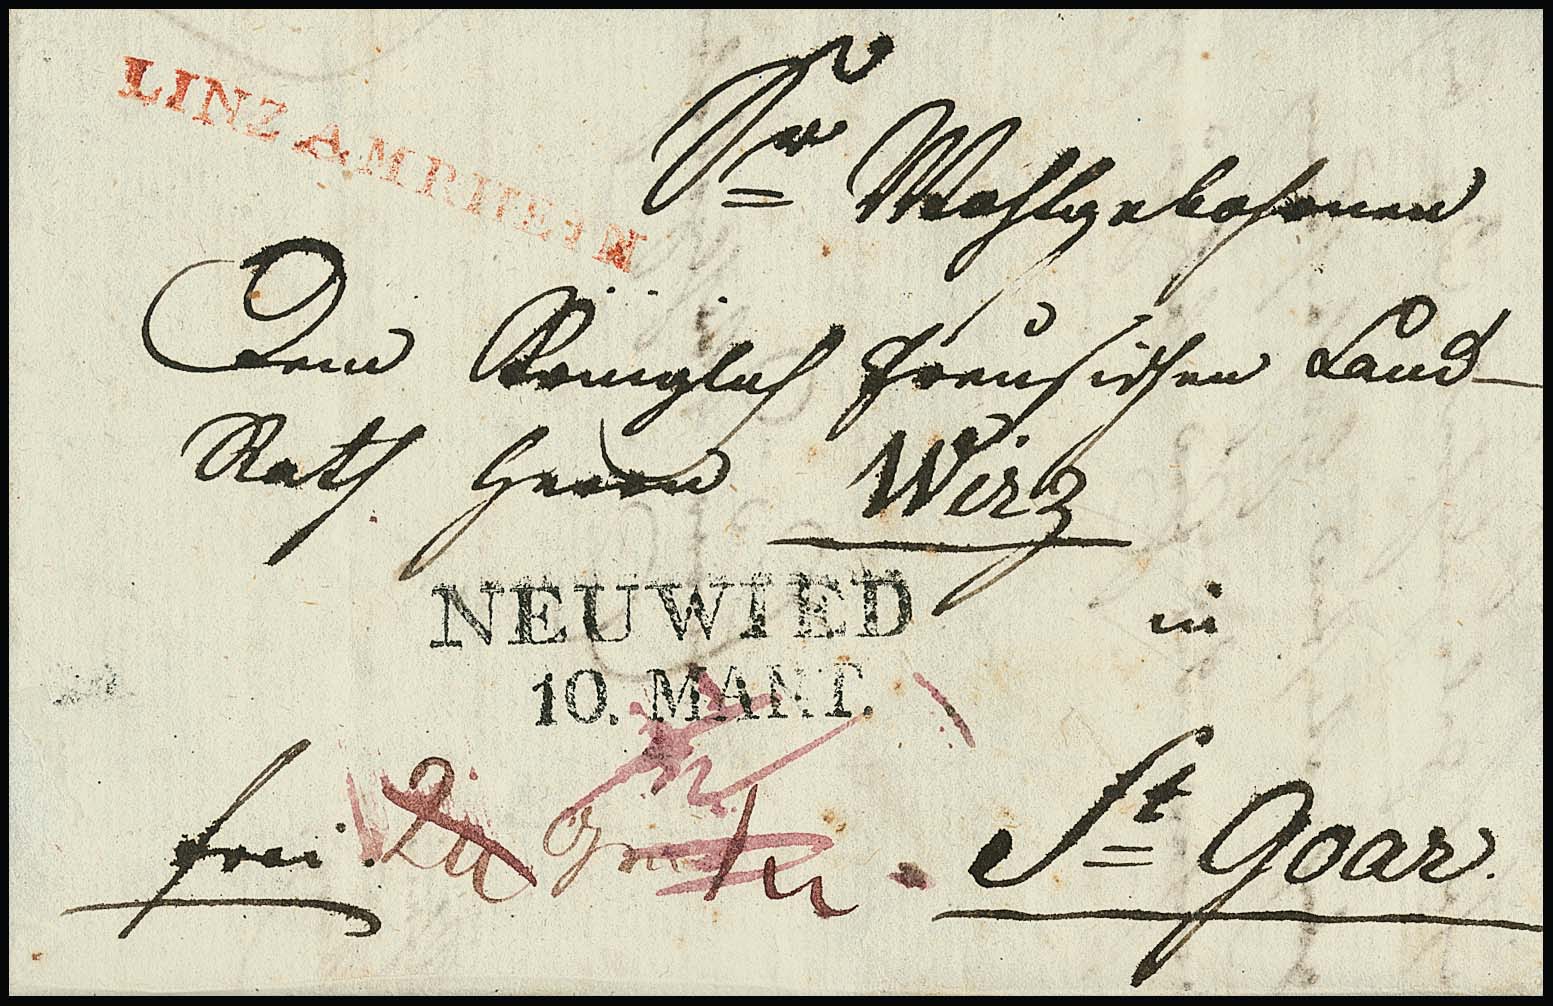 LINZ AM RHEIN
Sr Wohlgebohrnen
Dem Königlich Preußischen Land-
Rath Herrn Wirz
NEUWIED
10. MART.
in
frei.
St Goar.